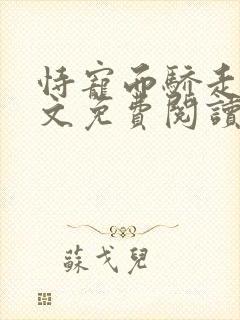 恃寵而驕走
文免費閱讀
蘇戈兒